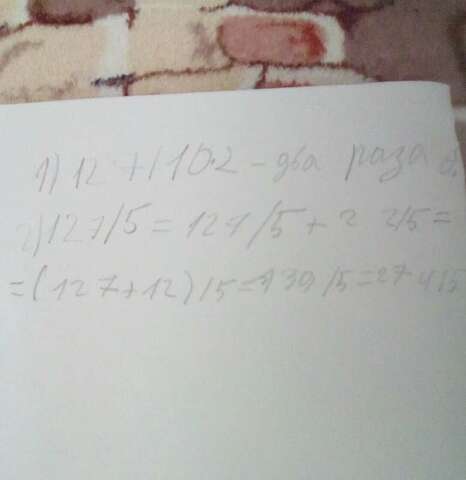 1) 12 + 110.2 - два раза
2) 127/5 = 127/5 + 2 2/5 =
= (127+12)/5 = 139/5 = 27 4/5